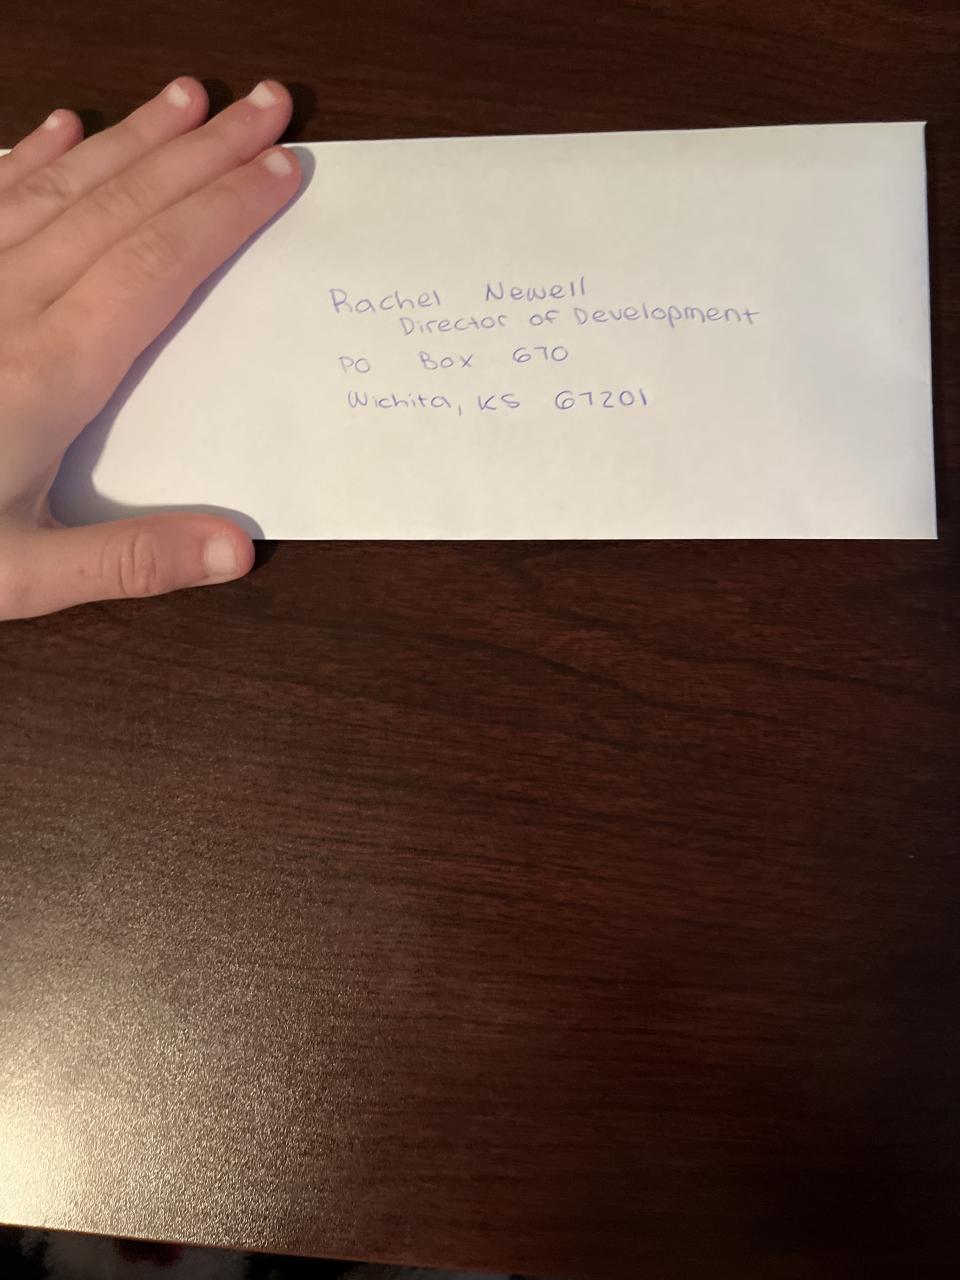 Rachel Newell
Director of Development
PO Box 670
Wichita, KS 67201